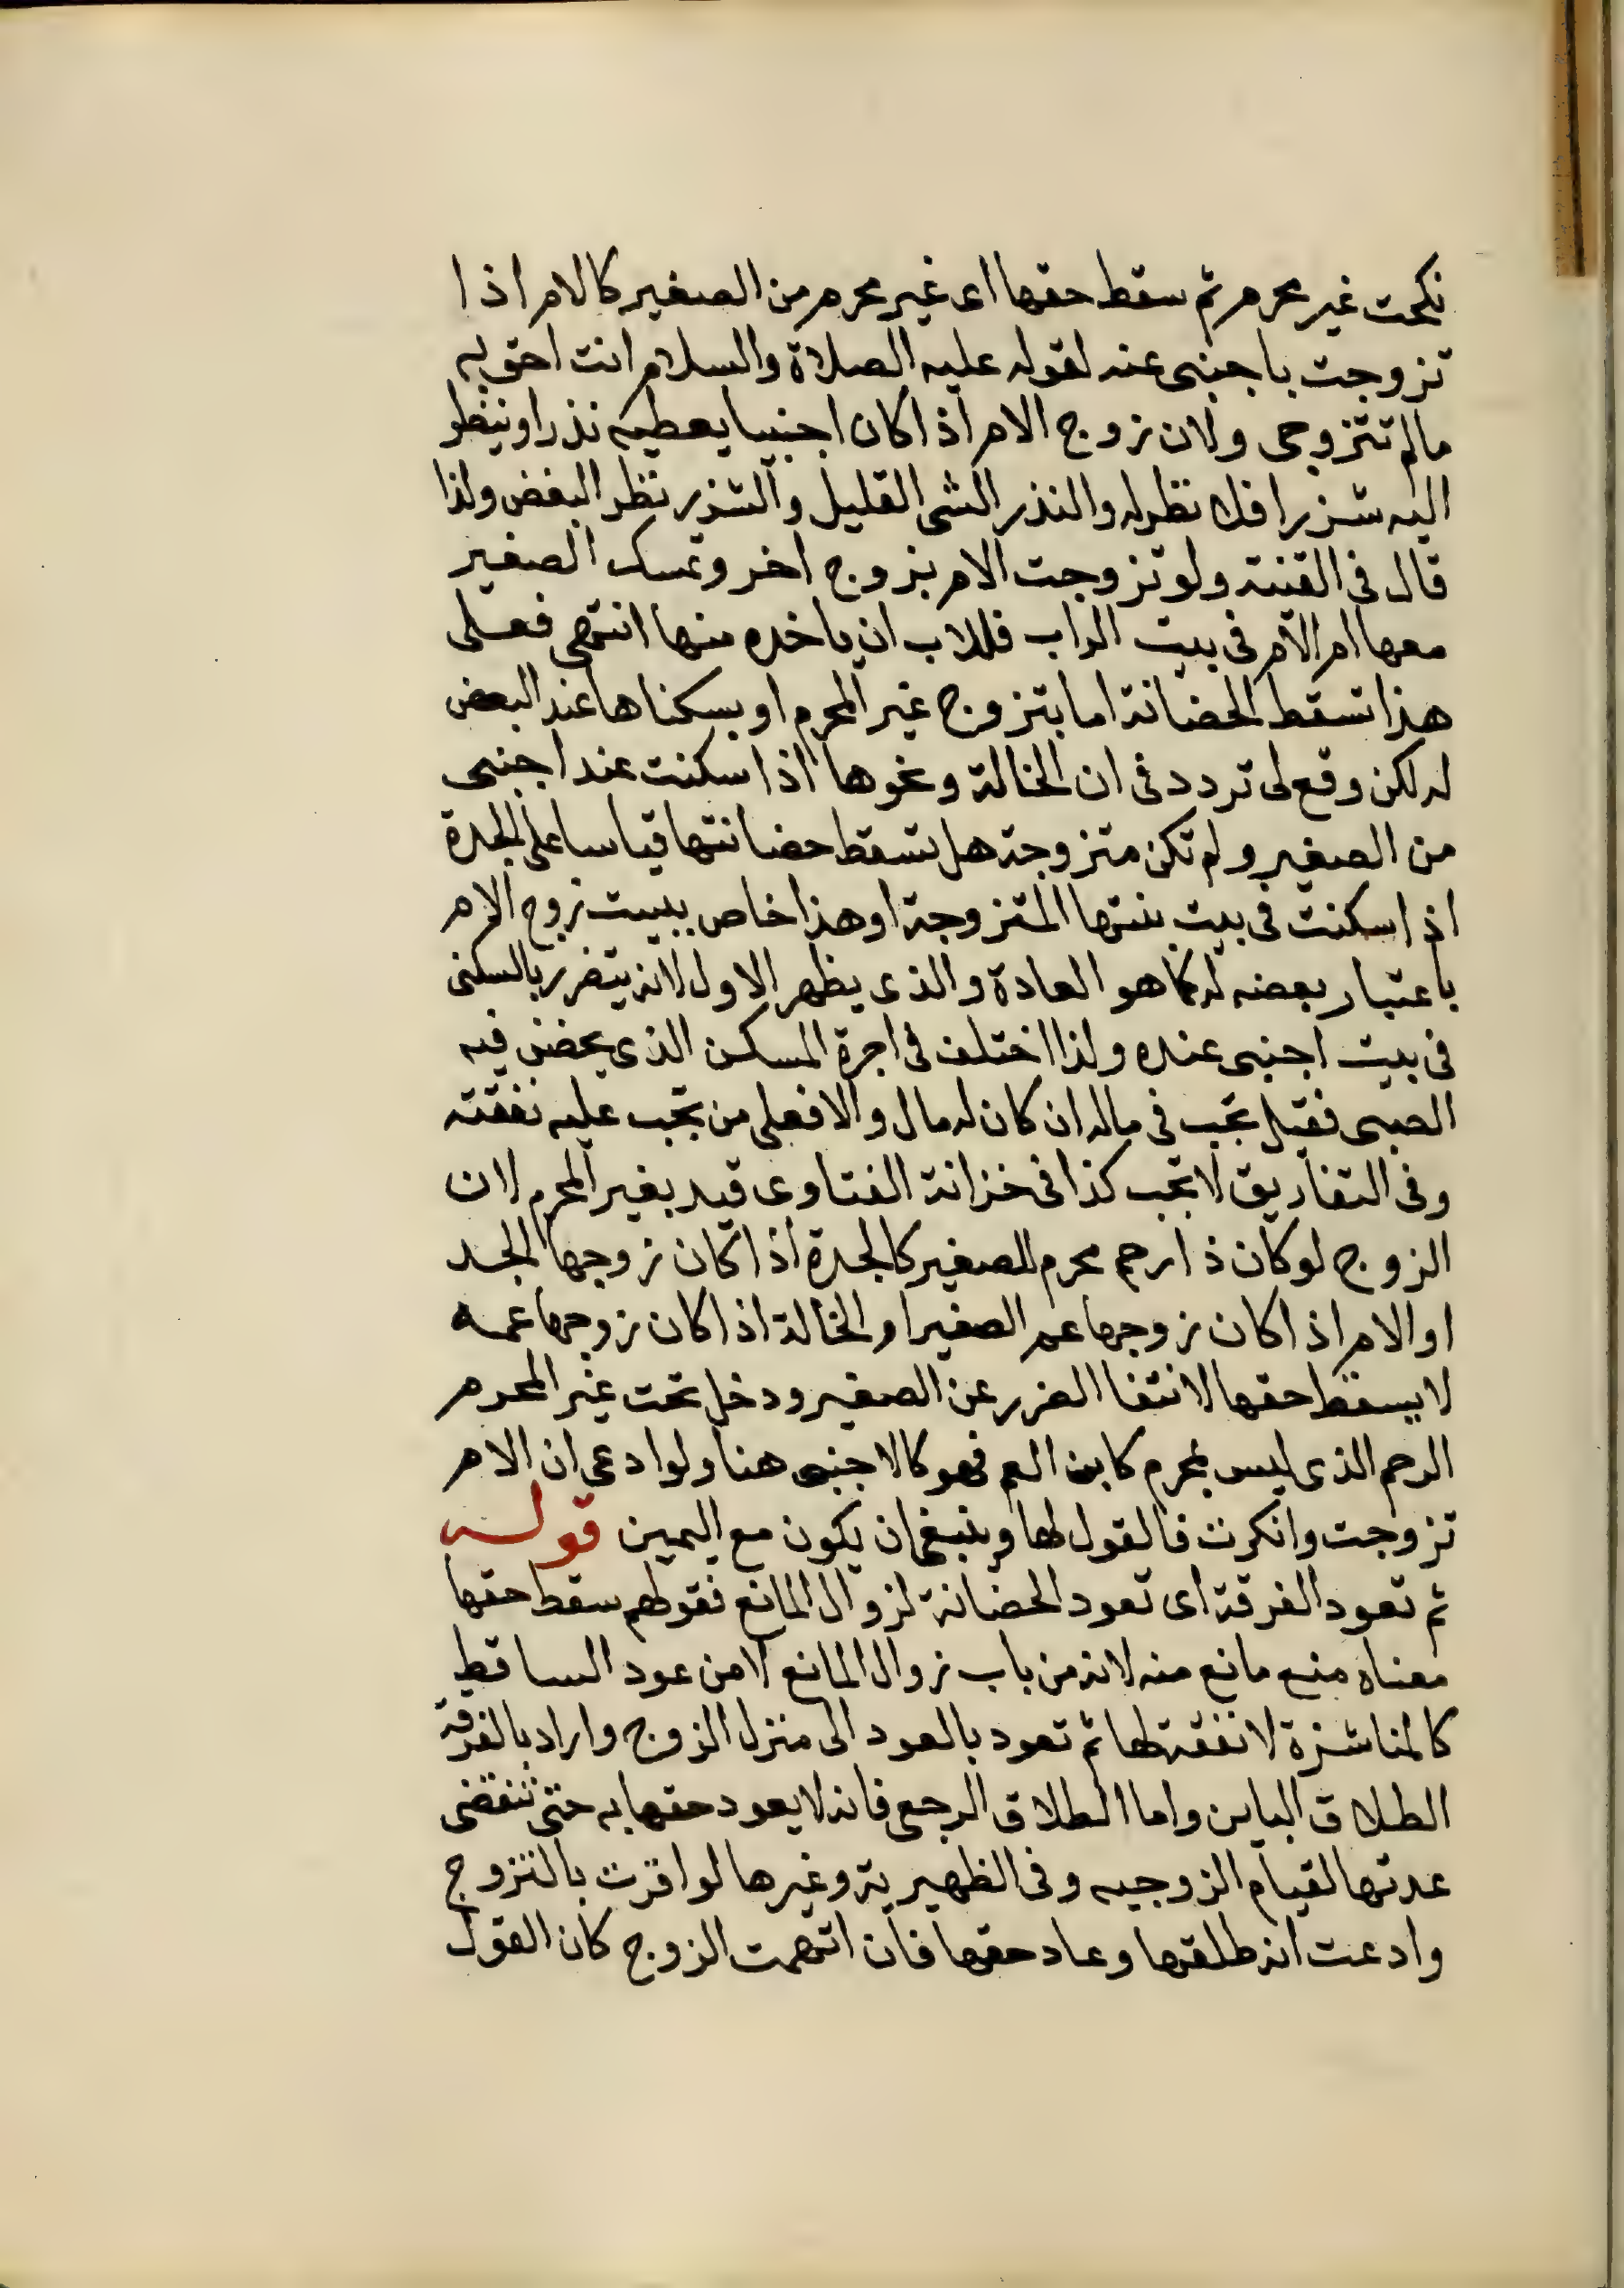 نكحت غير محرم ثم سقط حقها اى غير محرم من الصغير كالام اذا
تزوجت باجنبى عنه لقوله عليه الصلاة والسلام انت احق به
مالم تتزوجى ولان زوج الام اذا كان اجنبيا يعطيه نذرا وينظر
اليه شزرا فلا نظر له والنذر الشى القليل والشزر نظر البغض ولذا
قال فى القنية ولو تزوجت الام بزوج اخر وتمسك الصغير
معها ام الام فى بيت الراب فللاب ان ياخده منها انتهى فعلى
هذا تسقط الحضانة اما بتزوج غير المحرم او بسكناها عند البعض
له لكن وقع لى تردد فى ان الخالة ونحوها اذا سكنت عند اجنبى
من الصغير ولم تكن متزوجة هل تسقط حضانتها قياسا على الجدة
اذا سكنت فى بيت بنتها المتزوجة او هذا خاص ببيت زوج الام
باعتبار بعضه له كما هو العادة والذى يظهر الاول لانه يتضرر بالسكنى
فى بيت اجنبى عنده ولذا اختلف فى اجرة المسكن الذى يحضن فيه
الصبى فقيل تجب فى ماله ان كان له مال والا فعلى من تجب عليه نفقته
وفى التفاريق لا تجب كذا فى خزانة الفتاوى قيد بغير المحرم لان
الزوج لو كان ذا رحم محرم للصغير كالجدة اذا كان زوجها الجد
او الام اذا كان زوجها عم الصغير او الخالة اذا كان زوجها عمه
لا يسقط حقها لانتفا الضرر عن الصغير ودخل تحت غير المحرم
الرحم الذى ليس بمحرم كابن العم فهو كالاجنبى هنا ولو ادعى ان الام
تزوجت وانكرت فالقول لها وينبغى ان يكون مع اليمين قوله
ثم تعود الفرقة اى تعود الحضانة لزوال المانع فقولهم سقط حقها
معناه منع مانع منه لانه من باب زوال المانع لا من عود الساقط
كالناشزة لا نفقة لها ثم تعود بالعود الى منزل الزوج واراد بالفرقة
الطلاق الباين واما الطلاق الرجعى فانه لا يعود حقها به حتى تنقضى
عدتها لقيام الزوجيه وفى الظهيرية وغيرها لو اقرت بالتزوج
وادعت انه طلقها وعاد حقها فان اتهمت الزوج كان القول